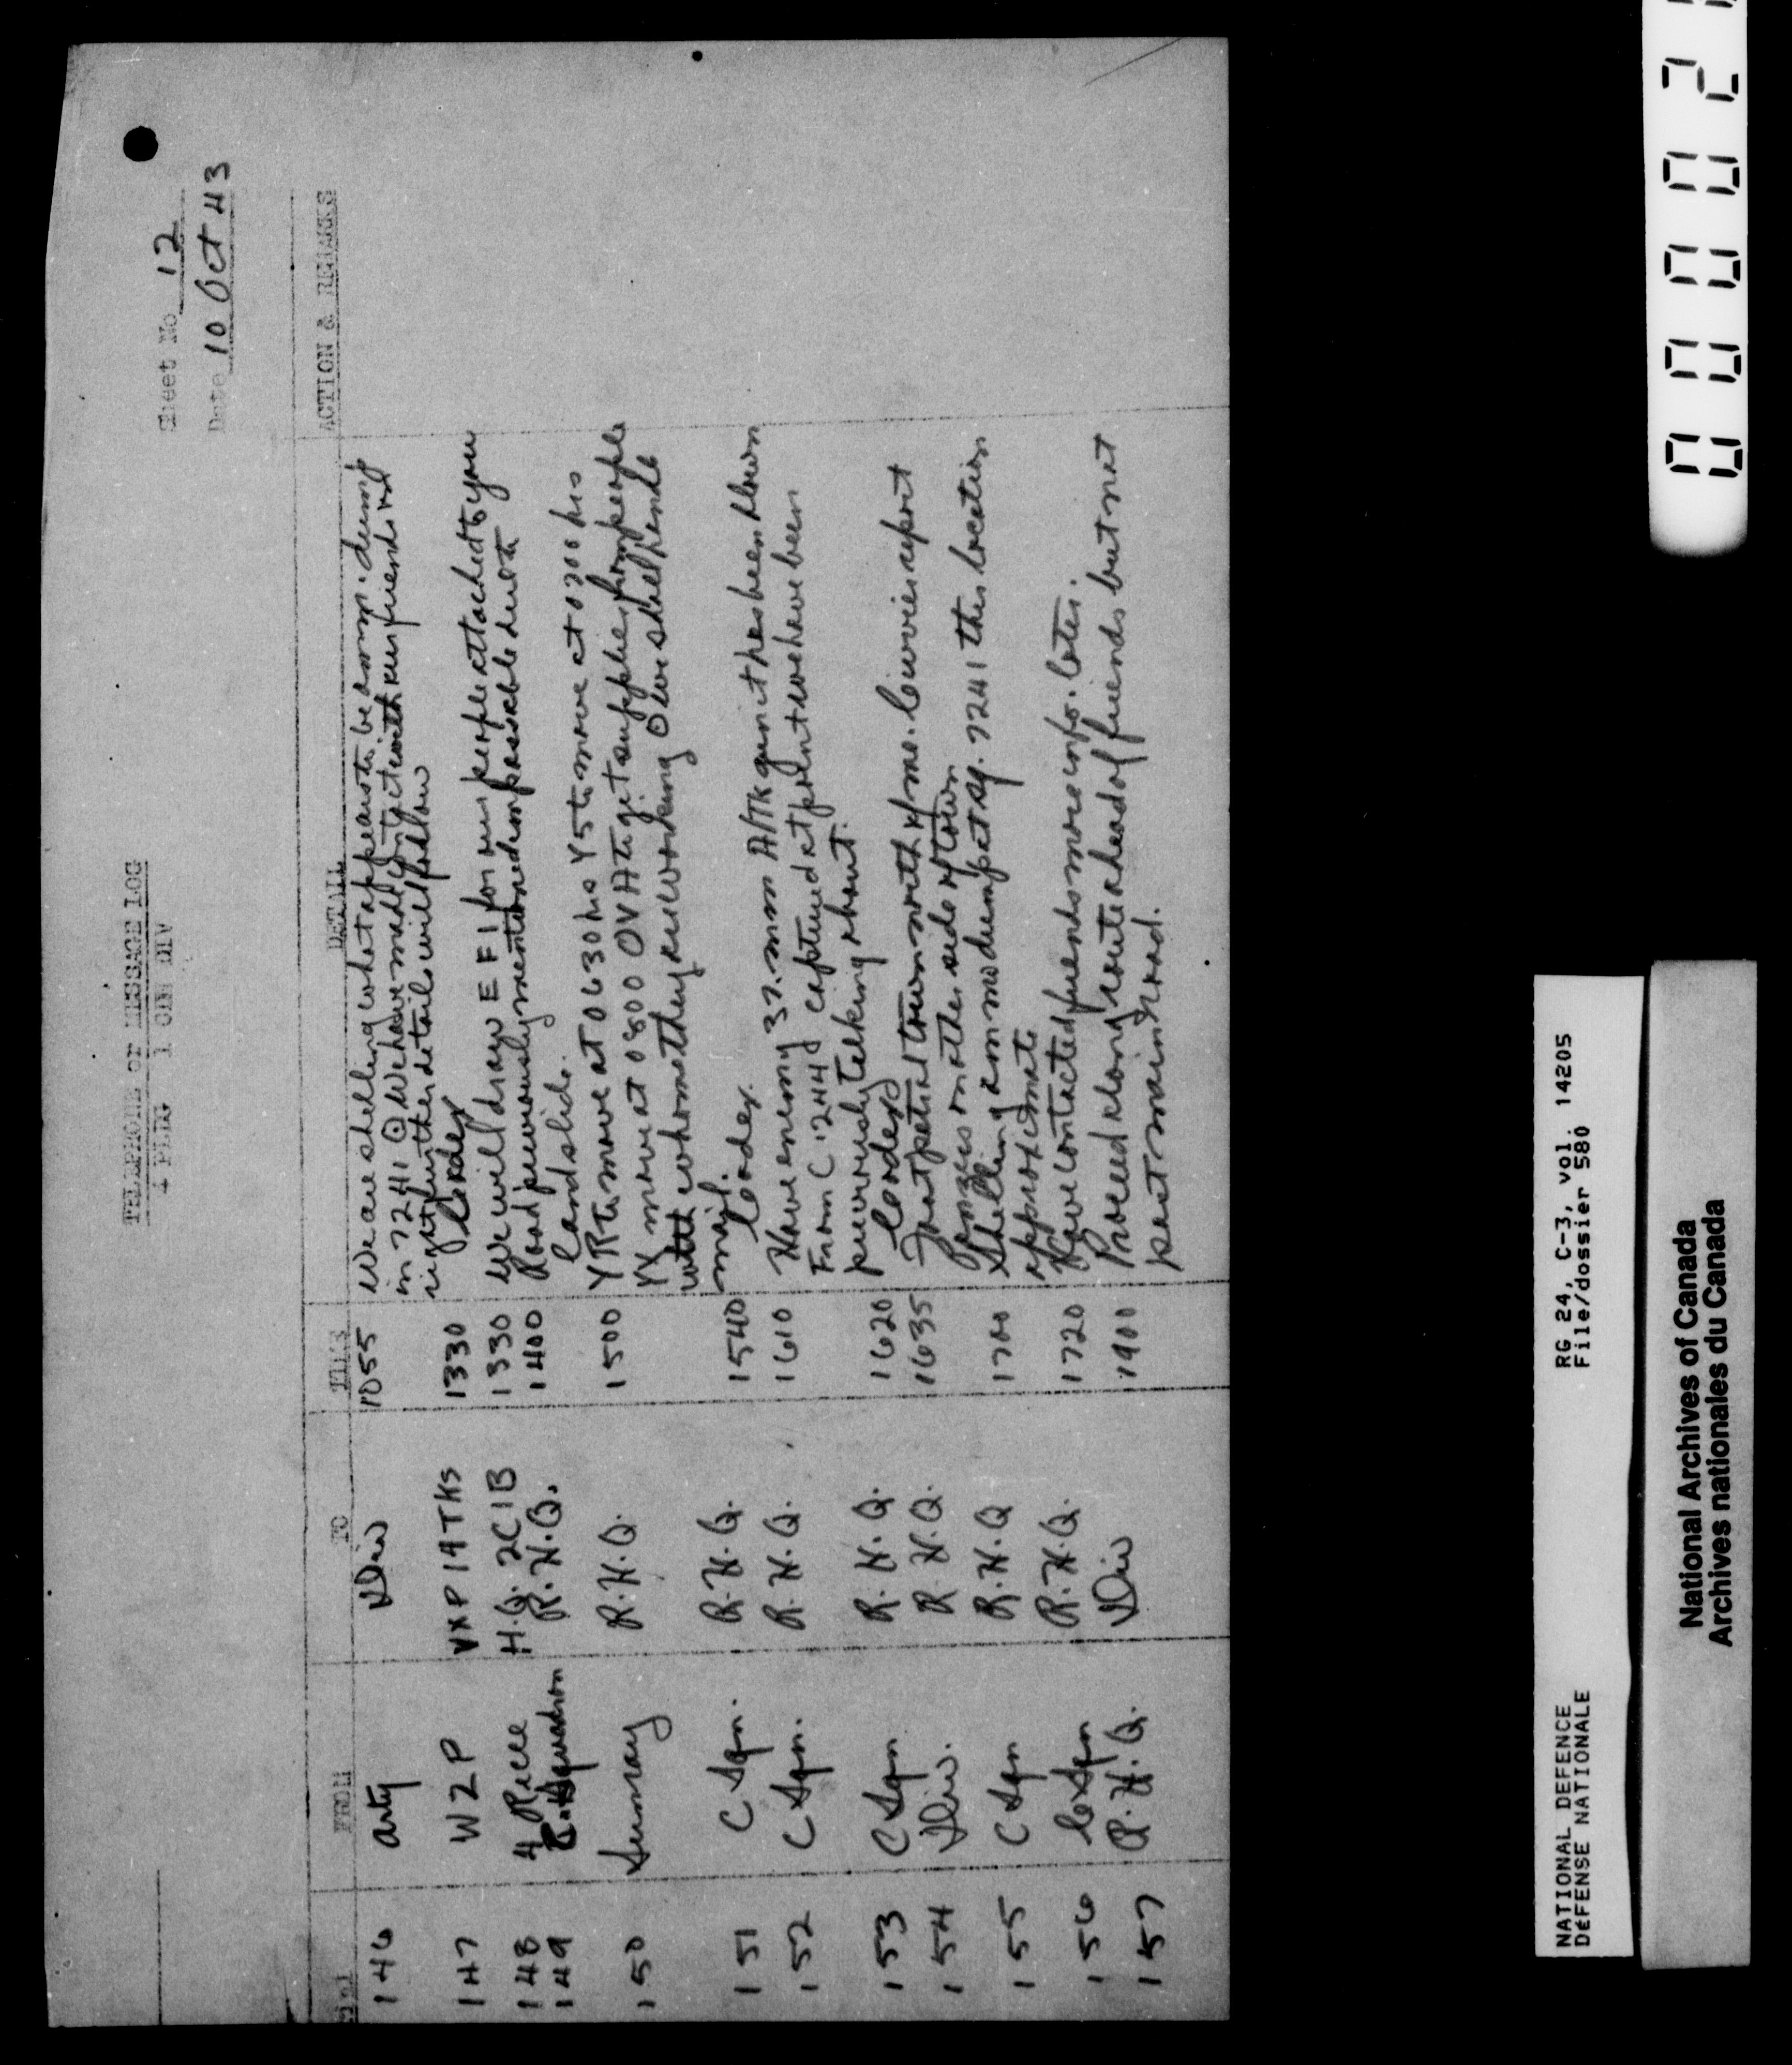 TELEPHONE or MESSAGE LOG
4 PLDG 1 CDN DIV
Sheet No 12
Date 10 Oct 43
FROM TO TIME DETAIL ACTION & REMARKS
146 Arty Div 1055 We are shelling what appears to be ammo. dump
in 7241 @ We have made contact with our friends on
right further details will follow
147 W2P VXP 14TKS 1330 Cordex
148 4 Recce H.Q. 2CIB 1330 We will draw EFI for our people attached to you
149 Squadron R.H.Q. 1400 Road previously mentioned impassable due to
landslide.
150 Sunray R.H.Q. 1500 YR to move at 0630 hrs Y5 to move at 0700 hrs
YX move at 0800 OVA to get supplies from people
with whom they are working Dvr shall send
mail.
151 C Sqn. R.H.Q. 1540 Cordex.
152 C Sqn. R.H.Q. 1610 Have enemy 37 mm A/TK gun it has been blown
From C.244 captured at point we have been
previously talking about.
153 C Sqn R.H.Q. 1620 Cordex
154 Div. R.H.Q. 1635 town north of me. Civvies report
on other side of town
155 C Sqn R.H.Q 1700 Shelling ammo dump at sq. 7241 this location
approximate
156 C Sqn R.H.Q. 1720 Have contacted friends more info. later.
157 R.H.Q. Div 1900 Proceed along route ahead of friends but not
past main road.
NATIONAL DEFENCE RG 24, C-3, vol. 14205
DÉFENSE NATIONALE File/dossier 580
National Archives of Canada
Archives nationales du Canada
00002